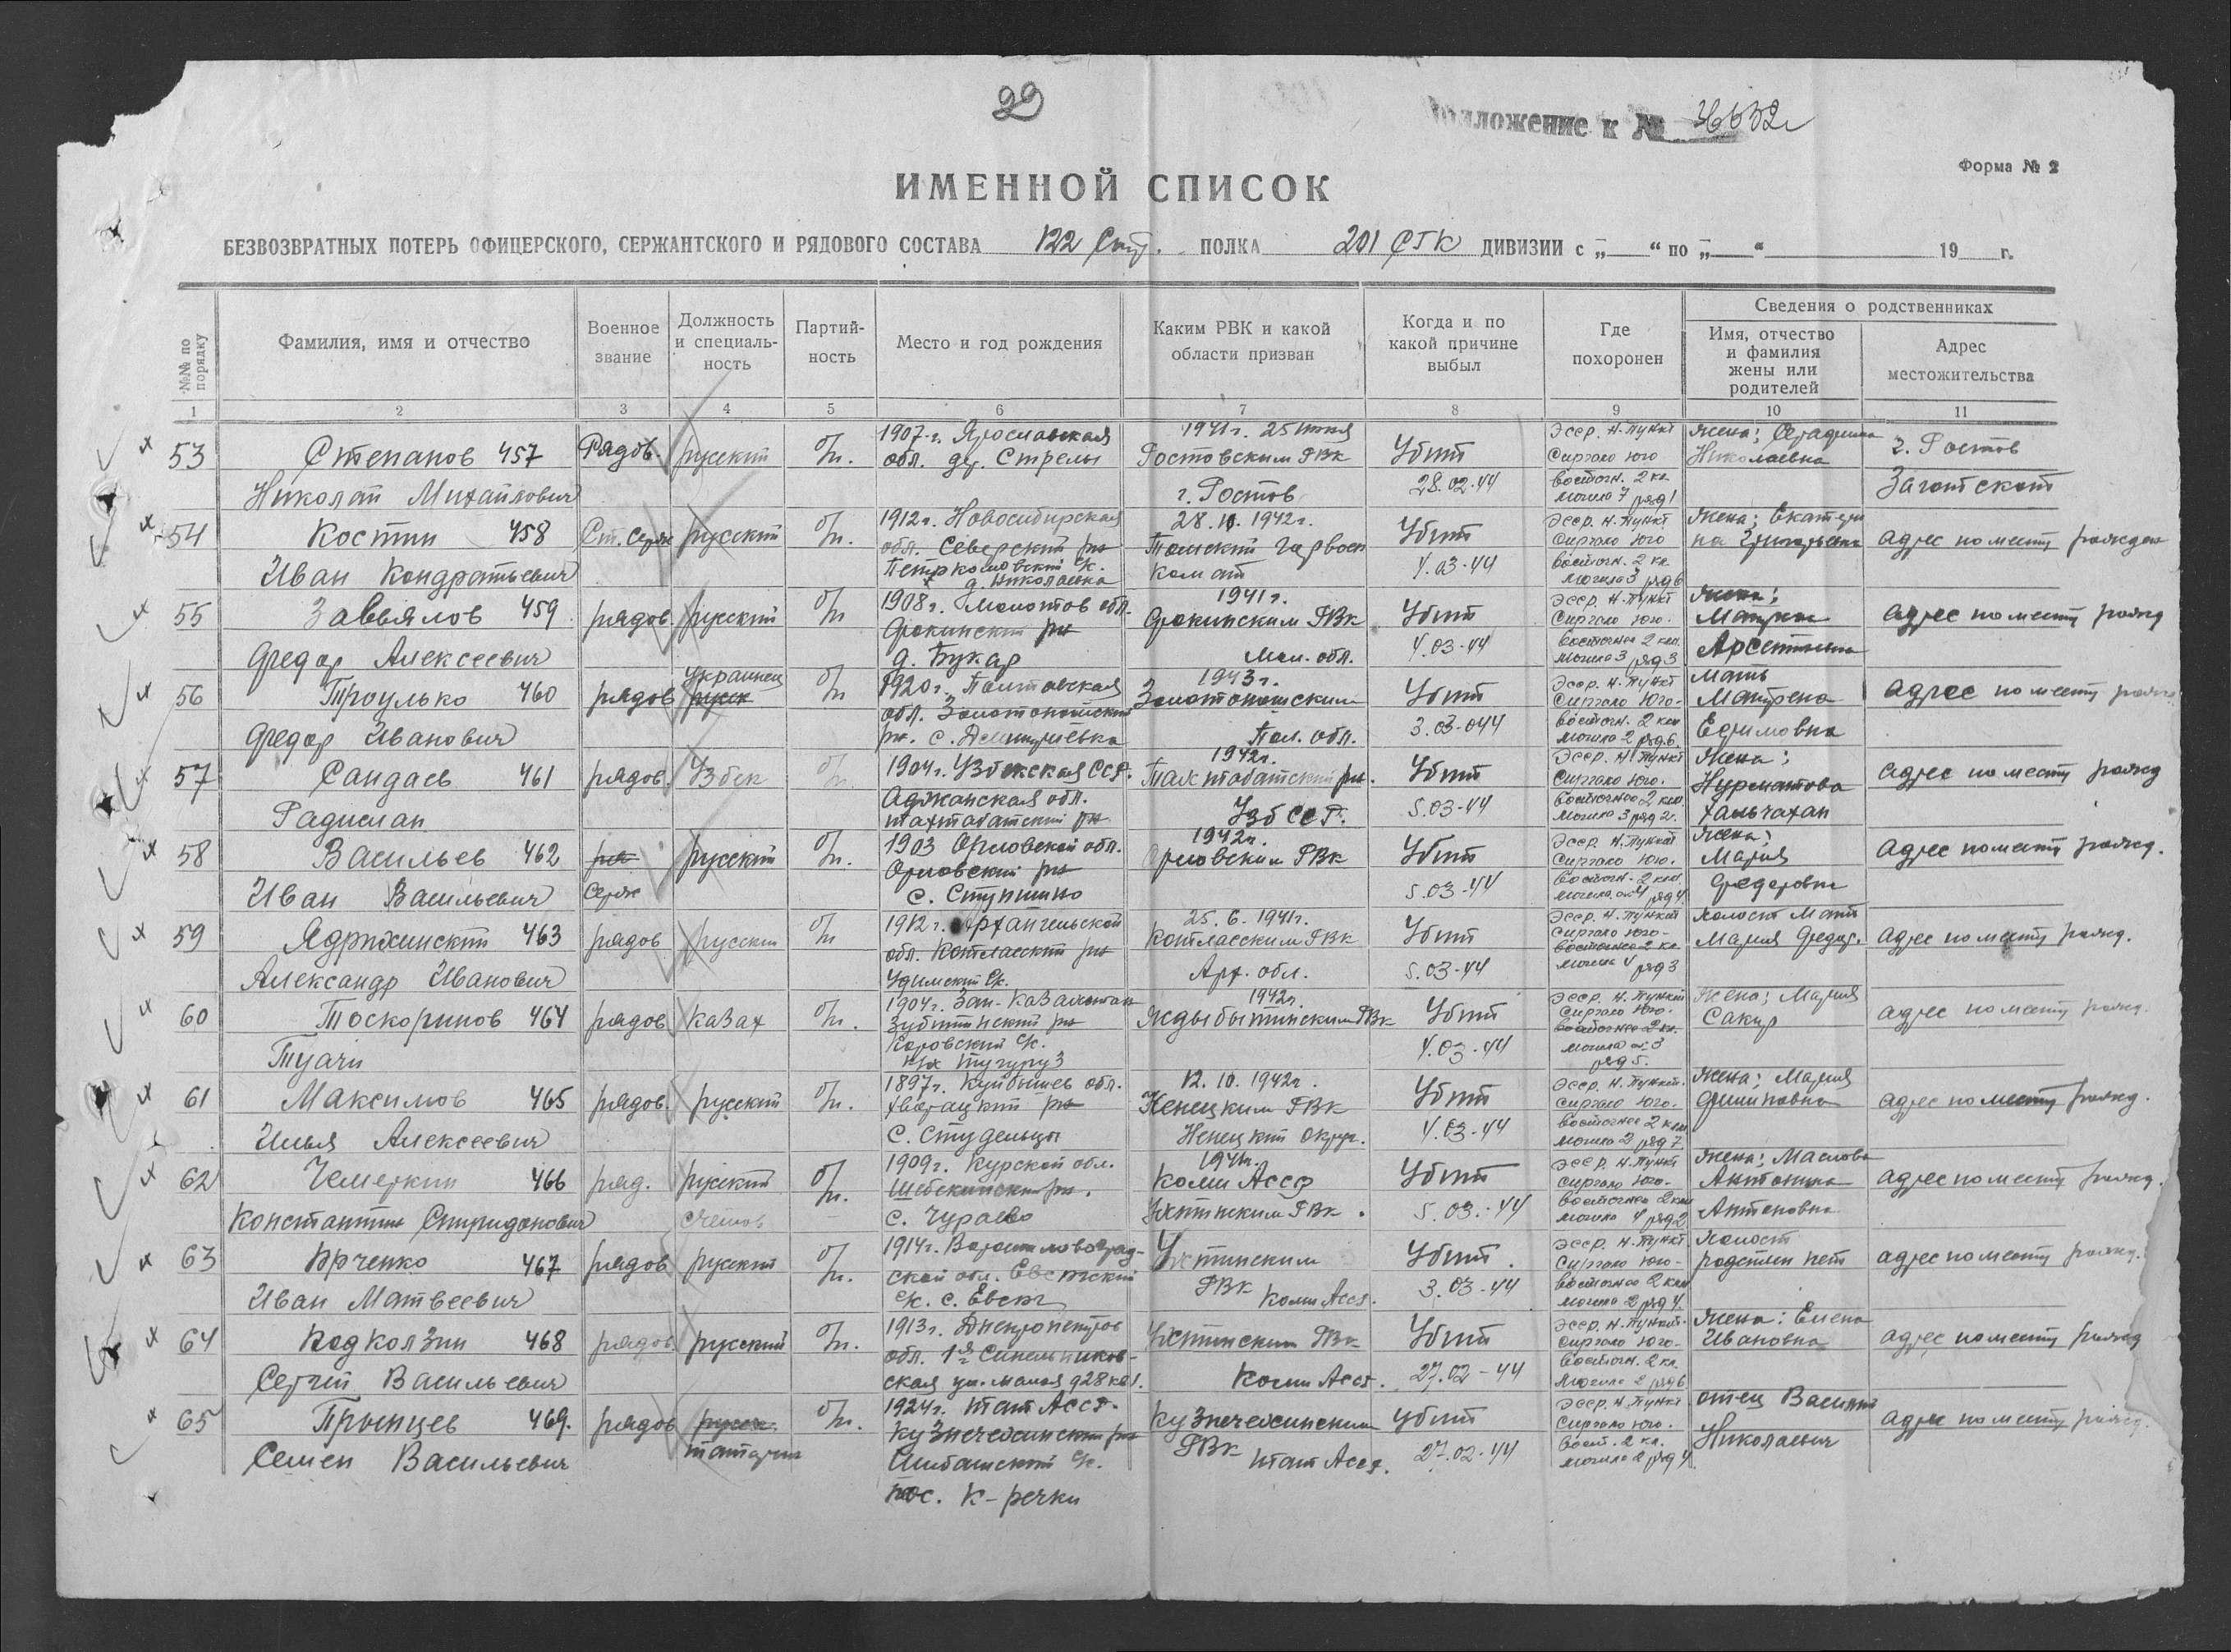 29
Приложение к №
Форма № 2
ИМЕННОЙ СПИСОК
БЕЗВОЗВРАТНЫХ ПОТЕРЬ ОФИЦЕРСКОГО, СЕРЖАНТСКОГО И РЯДОВОГО СОСТАВА 122 Стр. ПОЛКА 201 СГК ДИВИЗИИ с „ “ по „ “ 19 г.
№№ по порядку
Фамилия, имя и отчество
Военное звание
Должность и специальность
Партийность
Место и год рождения
Каким РВК и какой области призван
Когда и по какой причине выбыл
Где похоронен
Сведения о родственниках
Имя, отчество и фамилия жены или родителей
Адрес местожительства
1 2 3 4 5 6 7 8 9 10 11
53 Степанов 457 Рядов. русский б/п. 1907 г. Ярославская 1941 г. 25 Убит Эсср. н. пункт жена; Серафима г. Ростов
Николай Михайлович обл. дер. Стрелы Ростовским РВК г. Ростов 28.02.44 Сиргало юго восточн. 2 км могила 7 ряд 1 Николаевна
54 Костин 458 Ст. Серж русский б/п. 1912 г. Новосибирская 28. 10. 1942 г. Убит Эсср. н. пункт жена; Екатери
Иван Кондратьевич обл. Северский рн д. Николаевка Томский Горвоенкомат 4.03.44 Сиргало юго восточн. 2 км могила 3 ряд 6 на Григорьевна адрес по месту рожден
55 Завьялов 459 рядов. русский б/п 1908 г. Молотов обл. 1941 г. Убит Эсср. н. пункт жена;
Федор Алексеевич Фокинский рн д. Букар Фокинским РВК Мол. обл. 4.03.44 Сиргало юго. восточнее 2 км. могила 3 ряд 3 адрес по месту рожд
56 Троулько 460 рядов украинец б/п 1920 г. Полтавская 1943 г. Убит Эсср. н. пункт мать
Федор Иванович обл. Золотоношский рн. с. Дмитриевка Золотоношским Пол. обл. 3.03.044 Сиргало юго-восточн. 2 км могила 2 ряд 6. Матрена Ефимовна адрес по месту
57 Сандаев 461 рядов. Узбек б/п 1904 г. Узбекская ССР. 1942 г. Убит Эсср. н. пункт жена;
Радислан обл. рн Узб ССР. 5.03.44 Сиргало юго. восточнее 2 км. могила 3 ряд 2. Нурматова Хальчахан адрес по месту рожд
58 Васильев 462 Серж русский б/п. 1903 Орловской обл. 1942 г. Убит Эсср н. пункт жена;
Иван Васильевич Орловский рн с. Ступишино Орловским РВК 5.03.44 Сиргало юго. восточн. 2 км. могила ряд 4. Мария Федоровна адрес по месту рожд.
59 Ядрихинский 463 рядов русский б/п 1912 г. Архангельской 25. 6. 1941 г. Убит Эсср. н. пункт холост мать
Александр Иванович обл. Котласский рн Удимский с/с. Котласским РВК Арх. обл. 5.03.44 Сиргало юго-восточнее 2 км. могила 4 ряд 3 Мария Федор. адрес по месту рожд.
60 Тоскоринов 464 рядов казах б/п. 1904 г. Зап-Казахстан 1942 г. Убит Эсср. н. пункт жена; Мария
Туачи рн РВК 4.03.44 Сиргало юго. восточнее 2 км. могила 3 ряд 5. Сакир адрес по месту рожд.
61 Максимов 465 рядов. русский б/п. 1897 г. Куйбышев обл. 12. 10. 1942 г. Убит Эсср. н. пункт. жена; Мария
Илья Алексеевич рн с. Студельцы Ненецким РВК Ненецкий округ. 4.03.44 Сиргало юго. восточнее 2 км могила 2 ряд 7. Филиповна адрес по месту рожд.
62 Чемеркин 466 ряд. русский б/п. 1909 г. Курской обл. 1941 г. Убит Эсср. н. пункт жена; Маслова
Константин Спиридонович Шебекинский рн. с. Чураево Коми Асср Ухтинским РВК. 5.03.44 Сиргало юго. восточнее 2 км могила 4 ряд 2 Антонина Антоновна адрес по месту рожд.
63 Ярченко 467 рядов русский б/п. 1914 г. Ворошиловоград- Убит. Эсср. н. пункт холост
Иван Матвеевич ской обл. Евсюгский с/с. с. Евсюг Ухтинским РВК Коми Асср. 3.03.44 Сиргало юго- восточнее 2 км могила 2 ряд 4. родствен нет адрес по месту рожд.
64 Подколзин 468 рядов русский б/п. 1913 г. Днепропетров Убит Эсср. н. пункт жена: Елена
Сергей Васильевич обл. 1я Синельников- ская ул. малая д 28 кв 1. Ухтинским РВК Коми Асср. 27.02-44 Сиргало юго- восточн. 2 км. могила 2 ряд 6 Ивановна адрес по месту рожд
65 Прынцев 469. рядов татарин б/п. 1924 г. тат Асср. Убит Эсср. н. пункт отец Василий
Семен Васильевич Кузнечехинский рн с/с. пос. К-речки Кузнечехинским РВК тат Асср. 27.02.44 Сиргало юго. вост. 2 км. могила 2 ряд 4. Николаевич адрес по месту рожд.